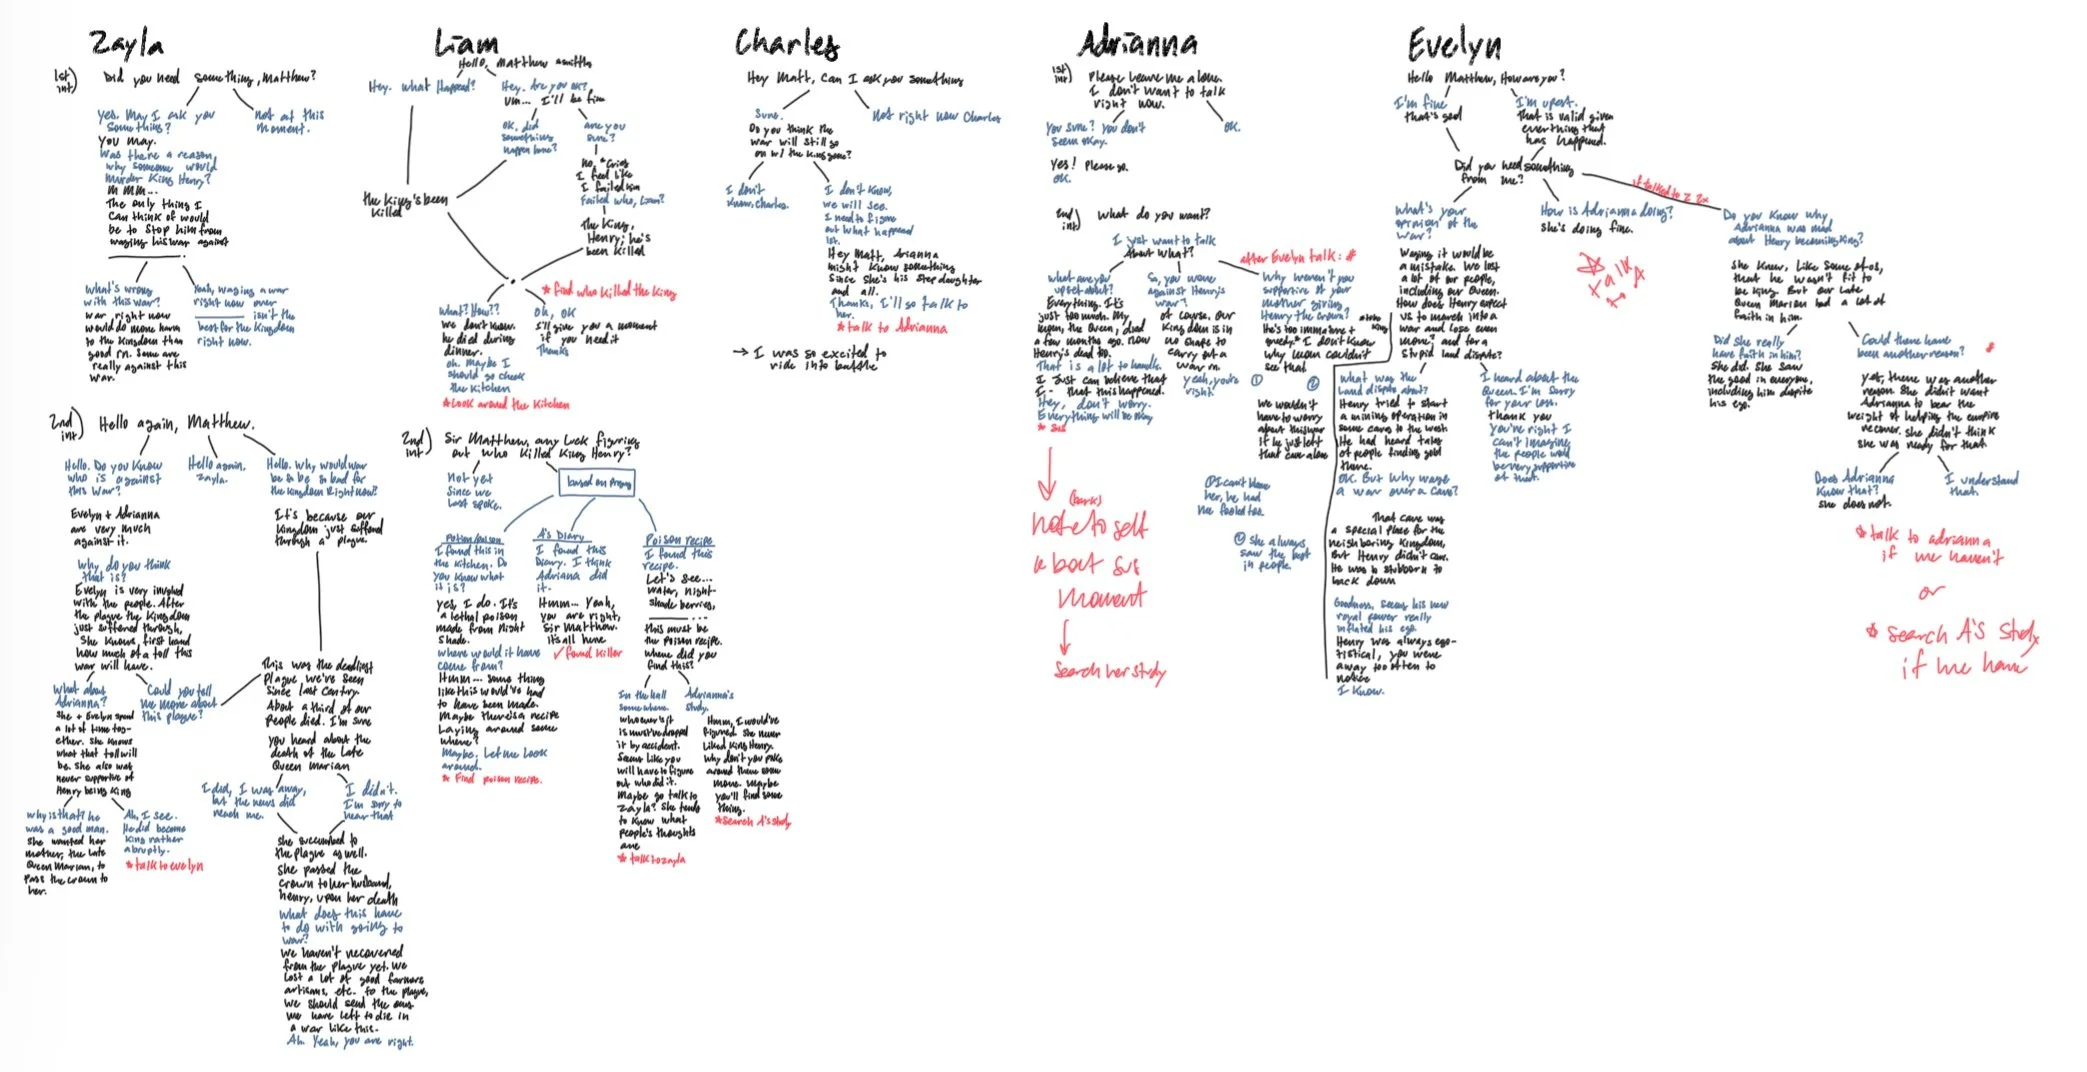 Zayla
1st int)
Did you need something, Matthew?
Yes. May I ask you
something?
Not at this
moment.
You may.
Was there a reason,
why someone would
murder King Henry?
Mmm...
The only thing I
can think of would
be to stop him from
waging his war against
What's wrong
with this war?
War, right now
would do more harm
to the kingdom than
good rn. Some are
really against this
war.
Yeah, waging a war
right now over
isn't the
best for the kingdom
right now.
2nd int)
Hello again, Matthew.
Hello. Do you know
who is against
this war?
Hello again,
Zayla.
Hello. Why would war
be so bad for
the kingdom right now?
Evelyn + Adrianna
are very much
against it.
Why do you think
that is?
Evelyn is very involved
with the people. After
the plague the kingdom
just suffered through,
she knows, first hand
how much of a toll this
war will have.
What about
Adrianna?
She + Evelyn spend
a lot of time tog-
ether. She knows
what that toll will
be. She also was
never supportive of
Henry being King
Why is that? he
was a good man.
She wanted her
mother, the late
Queen Marian, to
pass the crown to
her.
Ah, I see.
He did become
king rather
abruptly.
*talk to evelyn
Could you tell
me more about
this plague?
It's because our
kingdom just suffered
through a plague.
This was the deadliest
plague we've seen
since last century.
About a third of our
people died. I'm sure
you heard about the
death of the late
Queen Marian
I did, I was away,
but the news did
reach me.
I didn't.
I'm sorry to
hear that
She succumbed to
the plague as well.
She passed the
crown to her husband,
henry, upon her death
What does this have
to do with going to
war?
We haven't recovered
from the plague yet. We
lost a lot of good farmers,
artisans, etc. to the plague,
we should send the ones
we have left to die in
a war like this.
Ah. Yeah, you are right.
Liam
Hello, Matthew
Hey. What happened?
Hey. Are you ok?
Um... I'll be fine
OK, did
something
happen
are you
sure?
No, *cries
I feel like
I failed him
Failed who, Liam?
The King,
Henry; he's
been killed
the king's been
killed
*find who killed the king
What? How??
We don't know.
he died during
dinner.
oh. maybe I
should go check
the kitchen
*Look around the kitchen
Oh, ok
I'll give you a moment
if you need it
Thanks
2nd int)
Sir Matthew, any luck figuring
out who killed King Henry?
Not yet
since we
last spoke.
based on
I found this in
the kitchen. Do
you know what
it is?
Yes, I do. It's
a lethal poison
made from night
shade.
Where would it have
come from?
Hmm... some thing
like this would've had
to have been made.
Maybe there's a recipe
laying around some
where?
Maybe. Let me look
around.
* Find poison recipe.
A's Diary
I found this
Diary. I think
Adriana did
it.
Hmm... Yeah,
you are right,
Sir Matthew.
it's all here
✓ found killer
Poison recipe
I found this
recipe.
Let's see...
water, night-
shade berries,
...
this must be
the poison recipe.
where did you
find this?
In the hall
somewhere.
whoever is it
is must've dropped
it by accident.
Seems like you
will have to figure
out who did it.
Maybe go talk to
Zayla? She tends
to know what
people's thoughts
are
* talk to zayla
Adrianna's
study.
Hmm, I would've
figured. She never
liked King Henry.
Why don't you poke
around there some
more. maybe
you'll find some
thing.
*search A's study
Charles
Hey Matt, Can I ask you something
Sure.
Not right now Charles
Do you think the
war will still go
on w/ the King gone?
I don't
know, Charles.
I don't know,
we will see.
I need to figure
out what happened
1st.
Hey Matt, Arianna
might know something
since she's his step daughter
and all.
Thanks, I'll go talk to
her.
*talk to Adrianna
→ I was so excited to
ride into battle
Adrianna
1st int)
Please leave me alone.
I don't want to talk
right now.
You sure? You don't
seem okay.
OK.
Yes! Please go.
OK.
2nd int)
What do you want?
I just want to talk
About what?
after Evelyn talk: #
what are you
upset about?
Everything. It's
just too much. My
mom, the Queen, died
a few months ago. now
Henry's dead too.
That is a lot to handle.
I just can believe that
I - that this happened.
Hey, don't worry.
Everything will be okay
* sus
So, you were
against Henry's
war?
Of course. Our
kingdom is in
no shape to
carry out a
war rn.
yeah, you're
right.
Why weren't you
supportive of your
mother giving
Henry the crown?
He's too immature +
greedy. I don't know
why mom couldn't
see that
①
②
We wouldn't
have to worry
about this war
if he just left
that cave alone
① I can't blame
her, he had
me fooled too.
② She always
saw the best
in people.
(bark)
note to self
about sus
moment
Search her study
Evelyn
Hello Matthew, How are you?
I'm fine
that's good
I'm upset.
That is valid given
everything that
has happened.
Did you need something
from me?
if talked to Z 2x
What's your
opinion of the
war?
Waging it would be
a mistake. We lost
a lot of our people,
including our Queen.
How does Henry expect
us to march into a
war and lose even
more? and for a
stupid land dispute?
How is Adrianna doing?
She's doing fine.
What was the
land dispute about?
Henry tried to start
a mining operation in
some caves to the west
He had heard tales
of people finding gold
there.
OK. But why wage
a war over a cave?
That cave was
a special place for the
neighboring kingdom,
But Henry didn't care.
He was to stubborn to
back down
Goodness, seems his new
royal power really
inflated his ego.
Henry was always ego-
tistical, you were
away too often to
notice
I know.
I heard about the
Queen. I'm sorry
for your loss.
thank you
You're right I
can't imagine
the people would
be very supportive
of that.
Do you know why,
Adrianna was mad
about Henry becoming king?
She knew, like some of us,
that he wasn't fit to
be king. But our late
Queen Marian had a lot of
faith in him.
Did she really
have faith in him?
She did. She saw
the good in everyone,
including him despite
his ego.
Could there have
been another reason?
#
Yes, there was another
reason. She didn't want
Adrianna to bear the
weight of helping the empire
recover. She didn't think
she was ready for that
Does Adrianna
know that?
She does not.
I understand
that.
*talk to adrianna
if we haven't
or
* search A's study
if we have